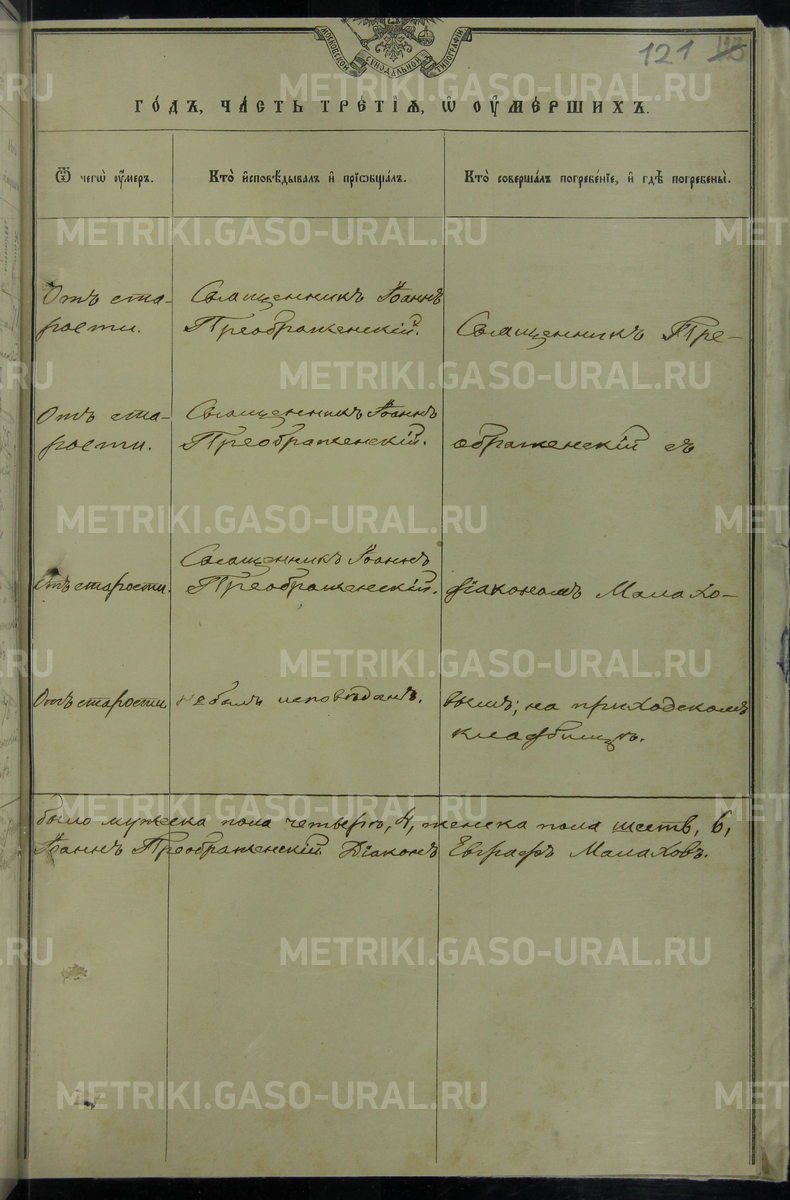 МОСКОВСКОЙ СѴНОДАЛЬНОЙ ТИПОГРАФІИ
121
ГО́ДЪ, ЧА́СТЬ ТРЕ́ТІѦ, Ѡ҆ ОУ҆МЕ́РШИХЪ.
Ѿ чегѡ̀ оу҆́меръ.
Кто̀ и҆сповѣ́дывалъ и҆ прїѡбща́лъ.
Кто̀ соверша́лъ погребе́нїе, и҆ гдѣ̀ погребены̀.
Отъ ста-
рости.
Священникъ Іоаннъ
Преображенскій.
Священникъ Пре-
Отъ ста-
рости.
Священникъ Іоаннъ
Преображенскій.
ображенскій съ
Отъ старости.
Священникъ Іоаннъ
Преображенскій.
діакономъ Малахо-
Отъ старости
не былъ исповѣданъ.
вымъ; на приходскомъ
кладбищѣ.
было мужеска пола четверо, 4, женска пола шесть, 6,
Іоаннъ Преображенскій Діаконъ Евграфъ Малаховъ.
METRIKI.GASO-URAL.RU